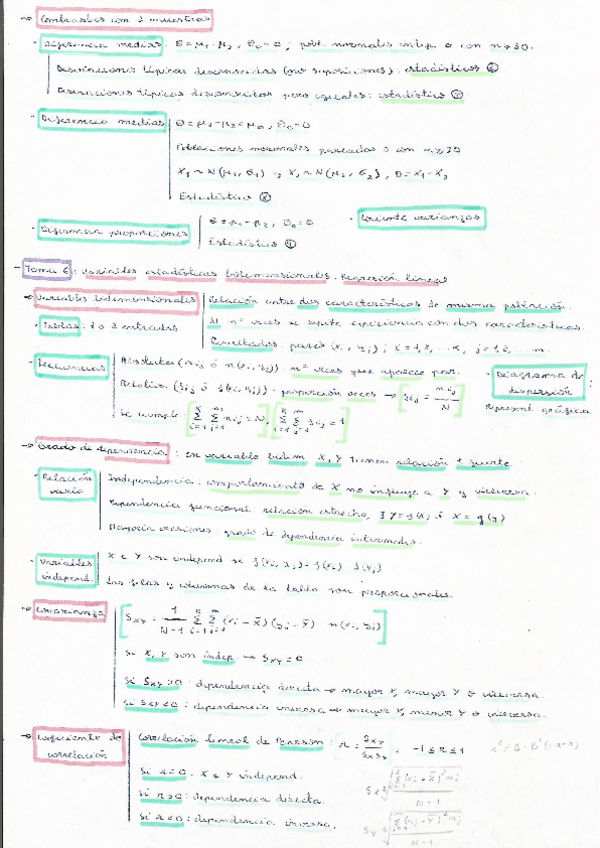 → Contrastes con 2 muestras
· Diferencia medias: θ = μ1 - μ2, θ0 = 0; pobl. normales indep. o con n > 30.
Desviaciones típicas desconocidas (no suposiciones): estadístico
Desviaciones típicas desconocidas pero iguales: estadístico
· Diferencia medias | θ = μ1 - μ2 = μD, θ0 = 0
Poblaciones normales pareadas o con n ≥ 30
X1 ~ N(μ1, σ1) , X2 ~ N(μ2, σ2), D = X1 - X2
Estadístico
· Diferencia proporciones | θ = p1 - p2, θ0 = 0 · Cociente varianzas
Estadístico
- Tema 6: variables estadísticas bidimensionales. Regresión lineal
→ Variables bidimensionales | Relación entre dos características de misma población.
· Tablas: 1 o 2 entradas | N nº veces se repite experiencia con dos características.
Resultados: pares (xi, yj); i = 1, 2, ... k, j = 1, 2, ... m.
· Frecuencias | Absolutas (nij ó n(xi, yj)): nº veces que aparece par. · Diagrama de dispersión:
Relativa (fij ó f(xi, yj)): proporción veces → [fij = nij / N] Represent. gráfica
Se cumple [∑ i=1 k ∑ j=1 m nij = N] [∑ i=1 k ∑ j=1 m fij = 1]
→ Grado de dependencia: en variable bidim X, Y tienen relación + fuerte
· Relación varía | Independencia: comportamiento de X no influye a Y y viceversa.
Dependencia funcional: relación estrecha, Y = f(X) ó X = g(Y)
Mayoría ocasiones: grado de dependencia intermedio.
· Variables independ. | X e Y son independ si f(xi, yj) = f(xi) · f(yj)
Las filas y columnas de la tabla son proporcionales.
→ Covarianza | [Sxy = 1 / N-1 ∑ i=1 k ∑ j=1 m (xi - x̄)(yj - ȳ) n(xi, yj)]
Si X, Y son indep. → Sxy = 0
Si Sxy > 0: dependencia directa → mayor X, mayor Y o viceversa.
Si Sxy < 0: dependencia inversa → mayor X, menor Y o viceversa.
→ Coeficiente de correlación | Correlación lineal de Pearson: r = Sxy / SxSy, -1 ≤ r ≤ 1
Si r = 0: X e Y independ.
Si r > 0: dependencia directa.
Si r < 0: dependencia inversa.